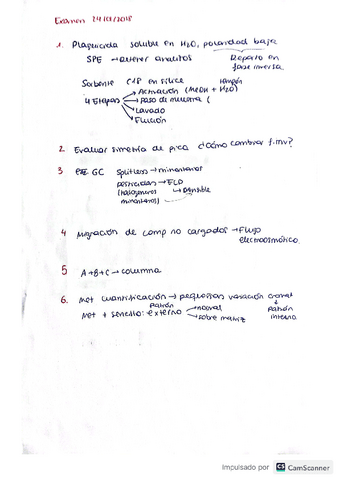 Examen 24/01/2018
1. Plaguicida soluble en H2O, polaridad baja
SPE → retener analitos Reparto en
fase inversa
Sorbente C18 en sílice tampón
4 Etapas → Activación (MeOH + H2O)
→ paso de muestra (
→ Lavado
→ Elución
2. Evaluar simetría de pico ¿Cómo cambiar f.mv?
3 GC Splitless → minoritarios
pesticidas → ECD
(halógenos → sensible
minoritarios)
4 Migración de comp no cargados → Flujo
electroosmótico.
5 A+B+C → columna
6. Met cuantificación → pequeñas variación cromat
Met + sencillo: externo normal patrón
Patrón sobre matriz interno
Impulsado por CS CamScanner